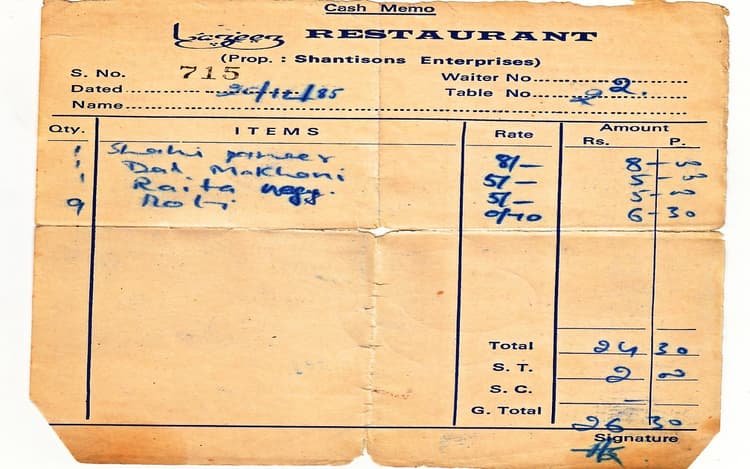 Cash Memo
Lazeez RESTAURANT
(Prop. : Shantisons Enterprises)
S. No. 715 Waiter No.
Dated 20/12/85 Table No. 2.
Name
Qty. ITEMS Rate Amount
Rs. P.
1 Shahi paneer 8/- 8 - 00
1 Dal Makhani 5/- 5 - 00
1 Raita vegg. 5/- 5 - 00
9 Roti 0/70 6 - 30
Total 24 30
S. T. 2 00
S. C. -
G. Total 26 30
Signature